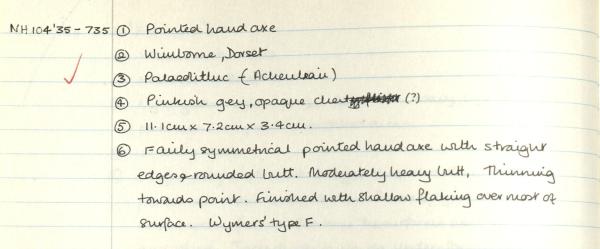 NH 104'35-735 ① Pointed hand axe
② Wimborne, Dorset
③ Palaeolithic (Acheulean)
④ Pinkish grey, opaque chert (?)
⑤ 11.1cm x 7.2cm x 3.4cm.
⑥ Fairly symmetrical pointed hand axe with straight
edges & rounded butt. Moderately heavy butt, Thinning
towards point. Finished with shallow flaking over most of
surface. Wymers' type F.